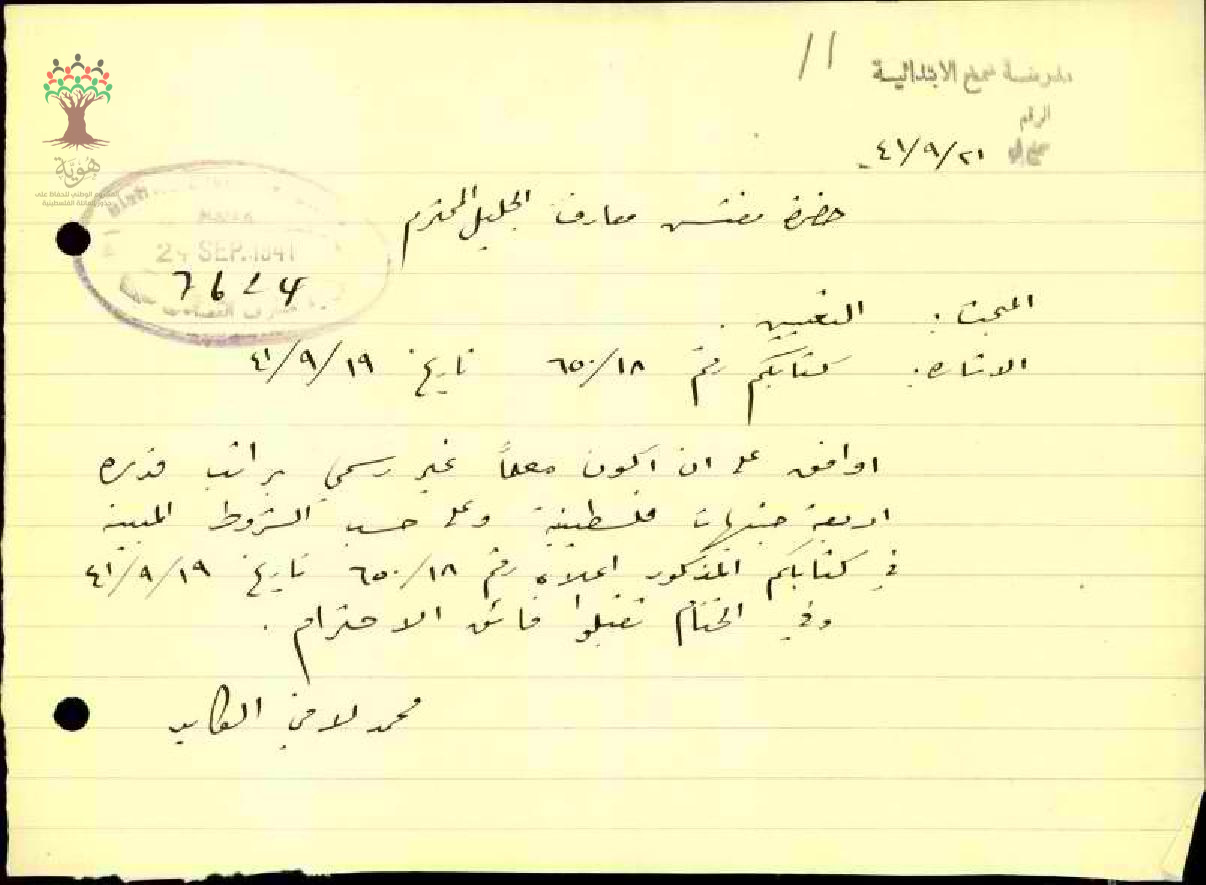 ١١
مدرسة سمخ الابتدائية
الرقم
٤١/٩/٢١
هوية
المشروع الوطني للحفاظ على
جذور العائلة الفلسطينية
HAIFA
24 SEP. 1941
7624
حضرة مفتش معارف الجليل المحترم
المبحث: التعيين.
الاشارة: كتابكم رقم ٦٥٠/١٨ تاريخ ٤١/٩/١٩
اوافق على ان اكون معلماً غير رسمي براتب قدره
اربعة جنيهات فلسطينية وعلى حسب الشروط المبينة
في كتابكم المذكور اعلاه رقم ٦٥٠/١٨ تاريخ ٤١/٩/١٩
وفي الختام تقبلوا فائق الاحترام.
محمد لافي العايد